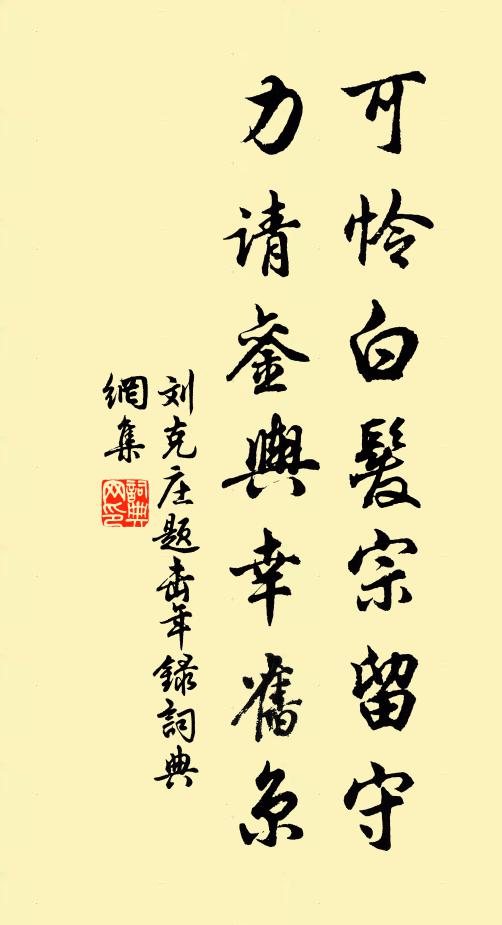 可怜白髮宗留守
力请銮舆幸舊京
刘克庄题年録詞典
網集
詞典网印